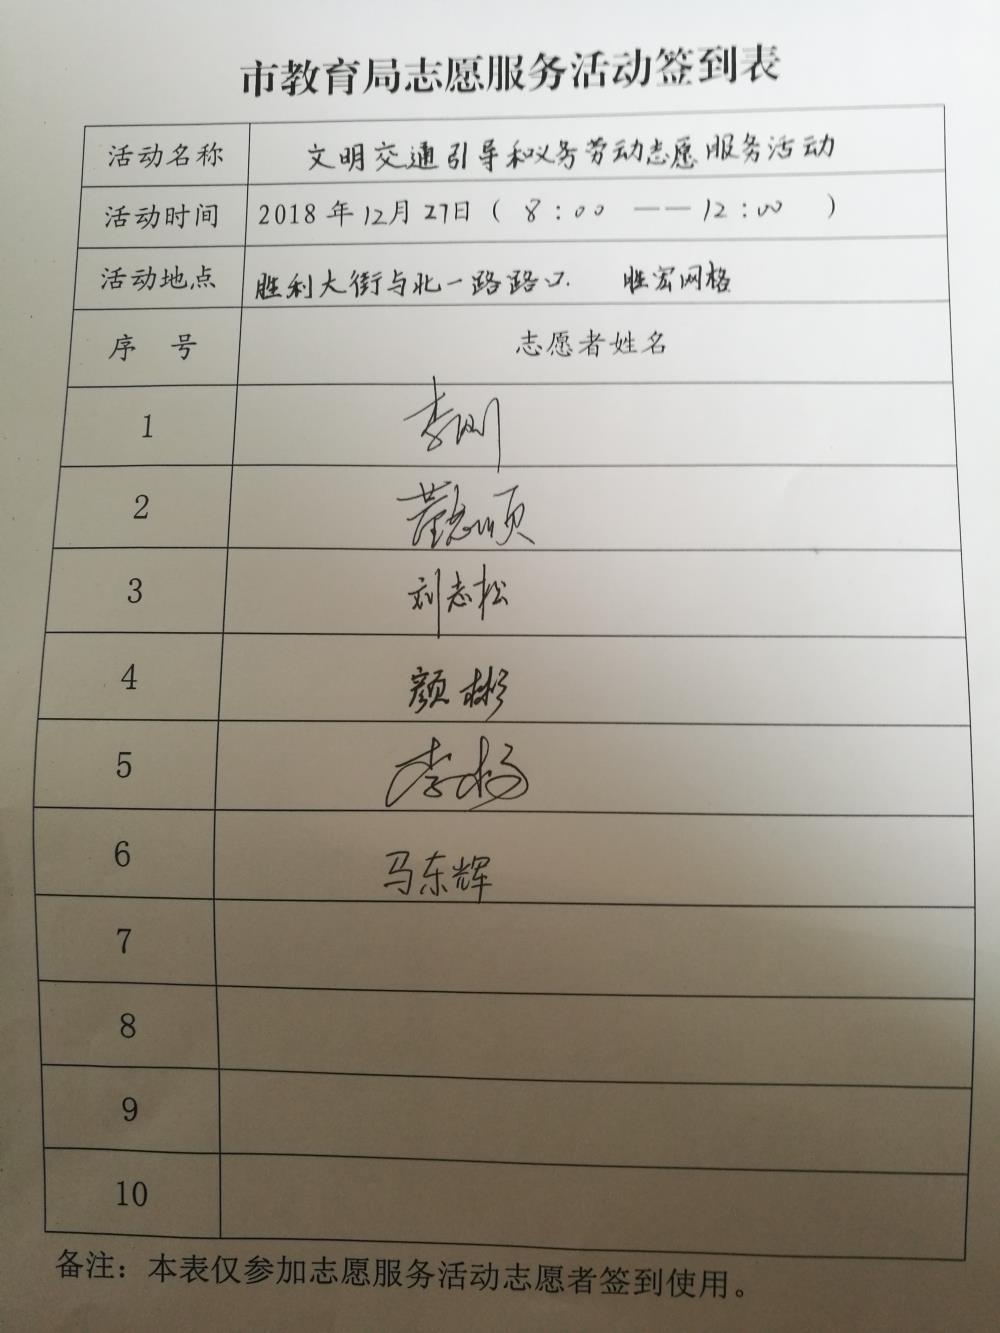 市教育局志愿服务活动签到表
活动名称 文明交通引导和义务劳动志愿服务活动
活动时间 2018年12月27日( 8:00 —— 12:00 )
活动地点 胜利大街与北一路路口. 胜宏网格
序 号 志愿者姓名
1 李刚
2 志顺
3 刘志松
4 颜彬
5 李杨
6 马东辉
7
8
9
10
备注：本表仅参加志愿服务活动志愿者签到使用。